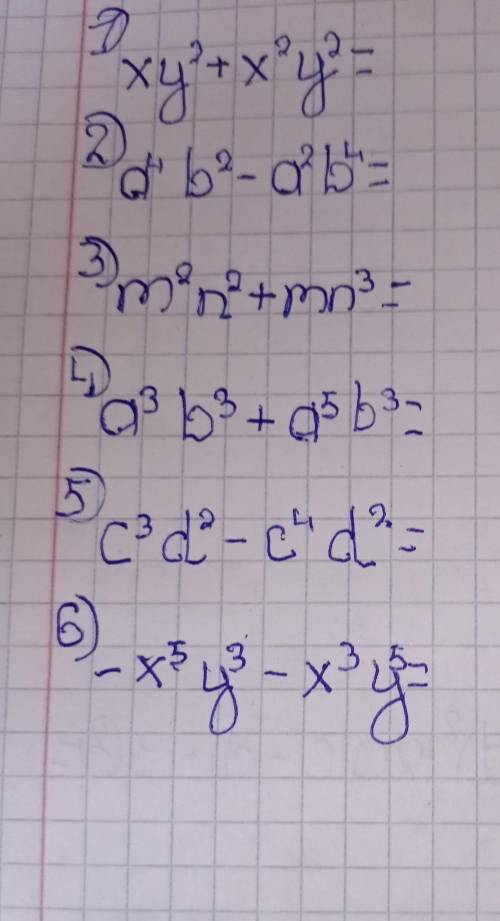 1) xy² + x²y² =
2) a⁴ b² - a²b⁴ =
3) m²n² + mn³ =
4) a³ b³ + a⁵ b³ =
5) c³d² - c⁴ d² =
6) - x⁵ y³ - x³ y⁵ =